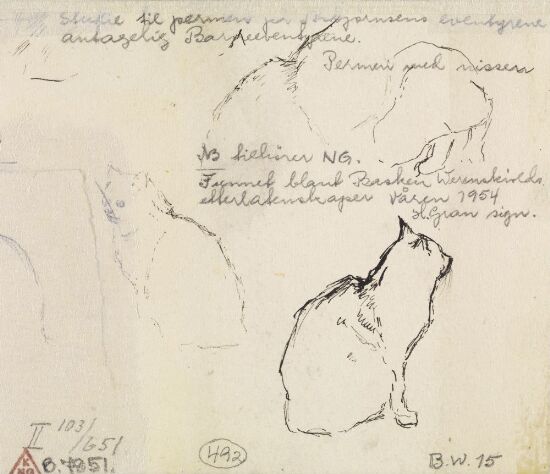 Studie til permen for Asbjørnsens eventyrene
antagelig Barneeventyrene.
Permen med nissen
NB tilhører NG.
Funnet blant Basken Werenskiolds
etterlatenskaper våren 1954
H. Gran sign.
II 1031/651
B. 7351.
492
B.W. 15